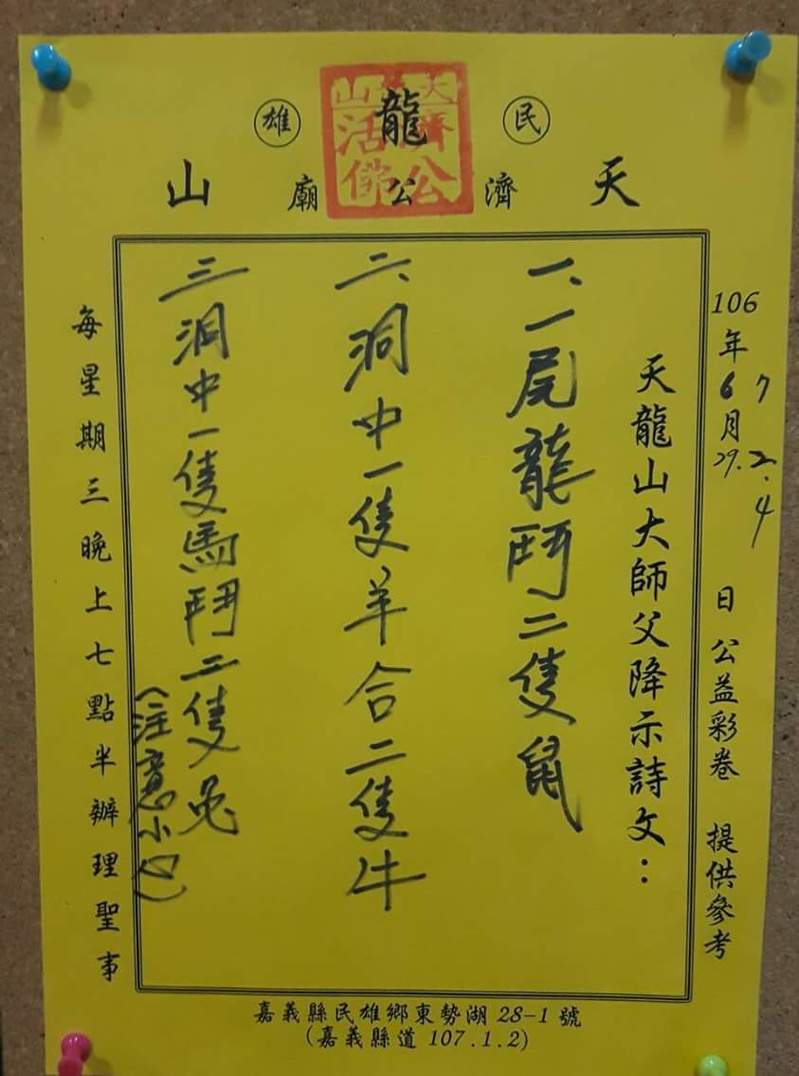 民 龍 雄
天 濟 公 廟 山
天山
濟公
活佛
106年6月29.日公益彩卷 提供參考
7 2.4
天龍山大師父降示詩文：
一、一尾龍鬥二隻鼠
二、洞中一隻羊合二隻牛
三洞中一隻馬鬥二隻兔
(注意小心)
每星期三晚上七點半辦理聖事
嘉義縣民雄鄉東勢湖28-1號
(嘉義縣道107.1.2)